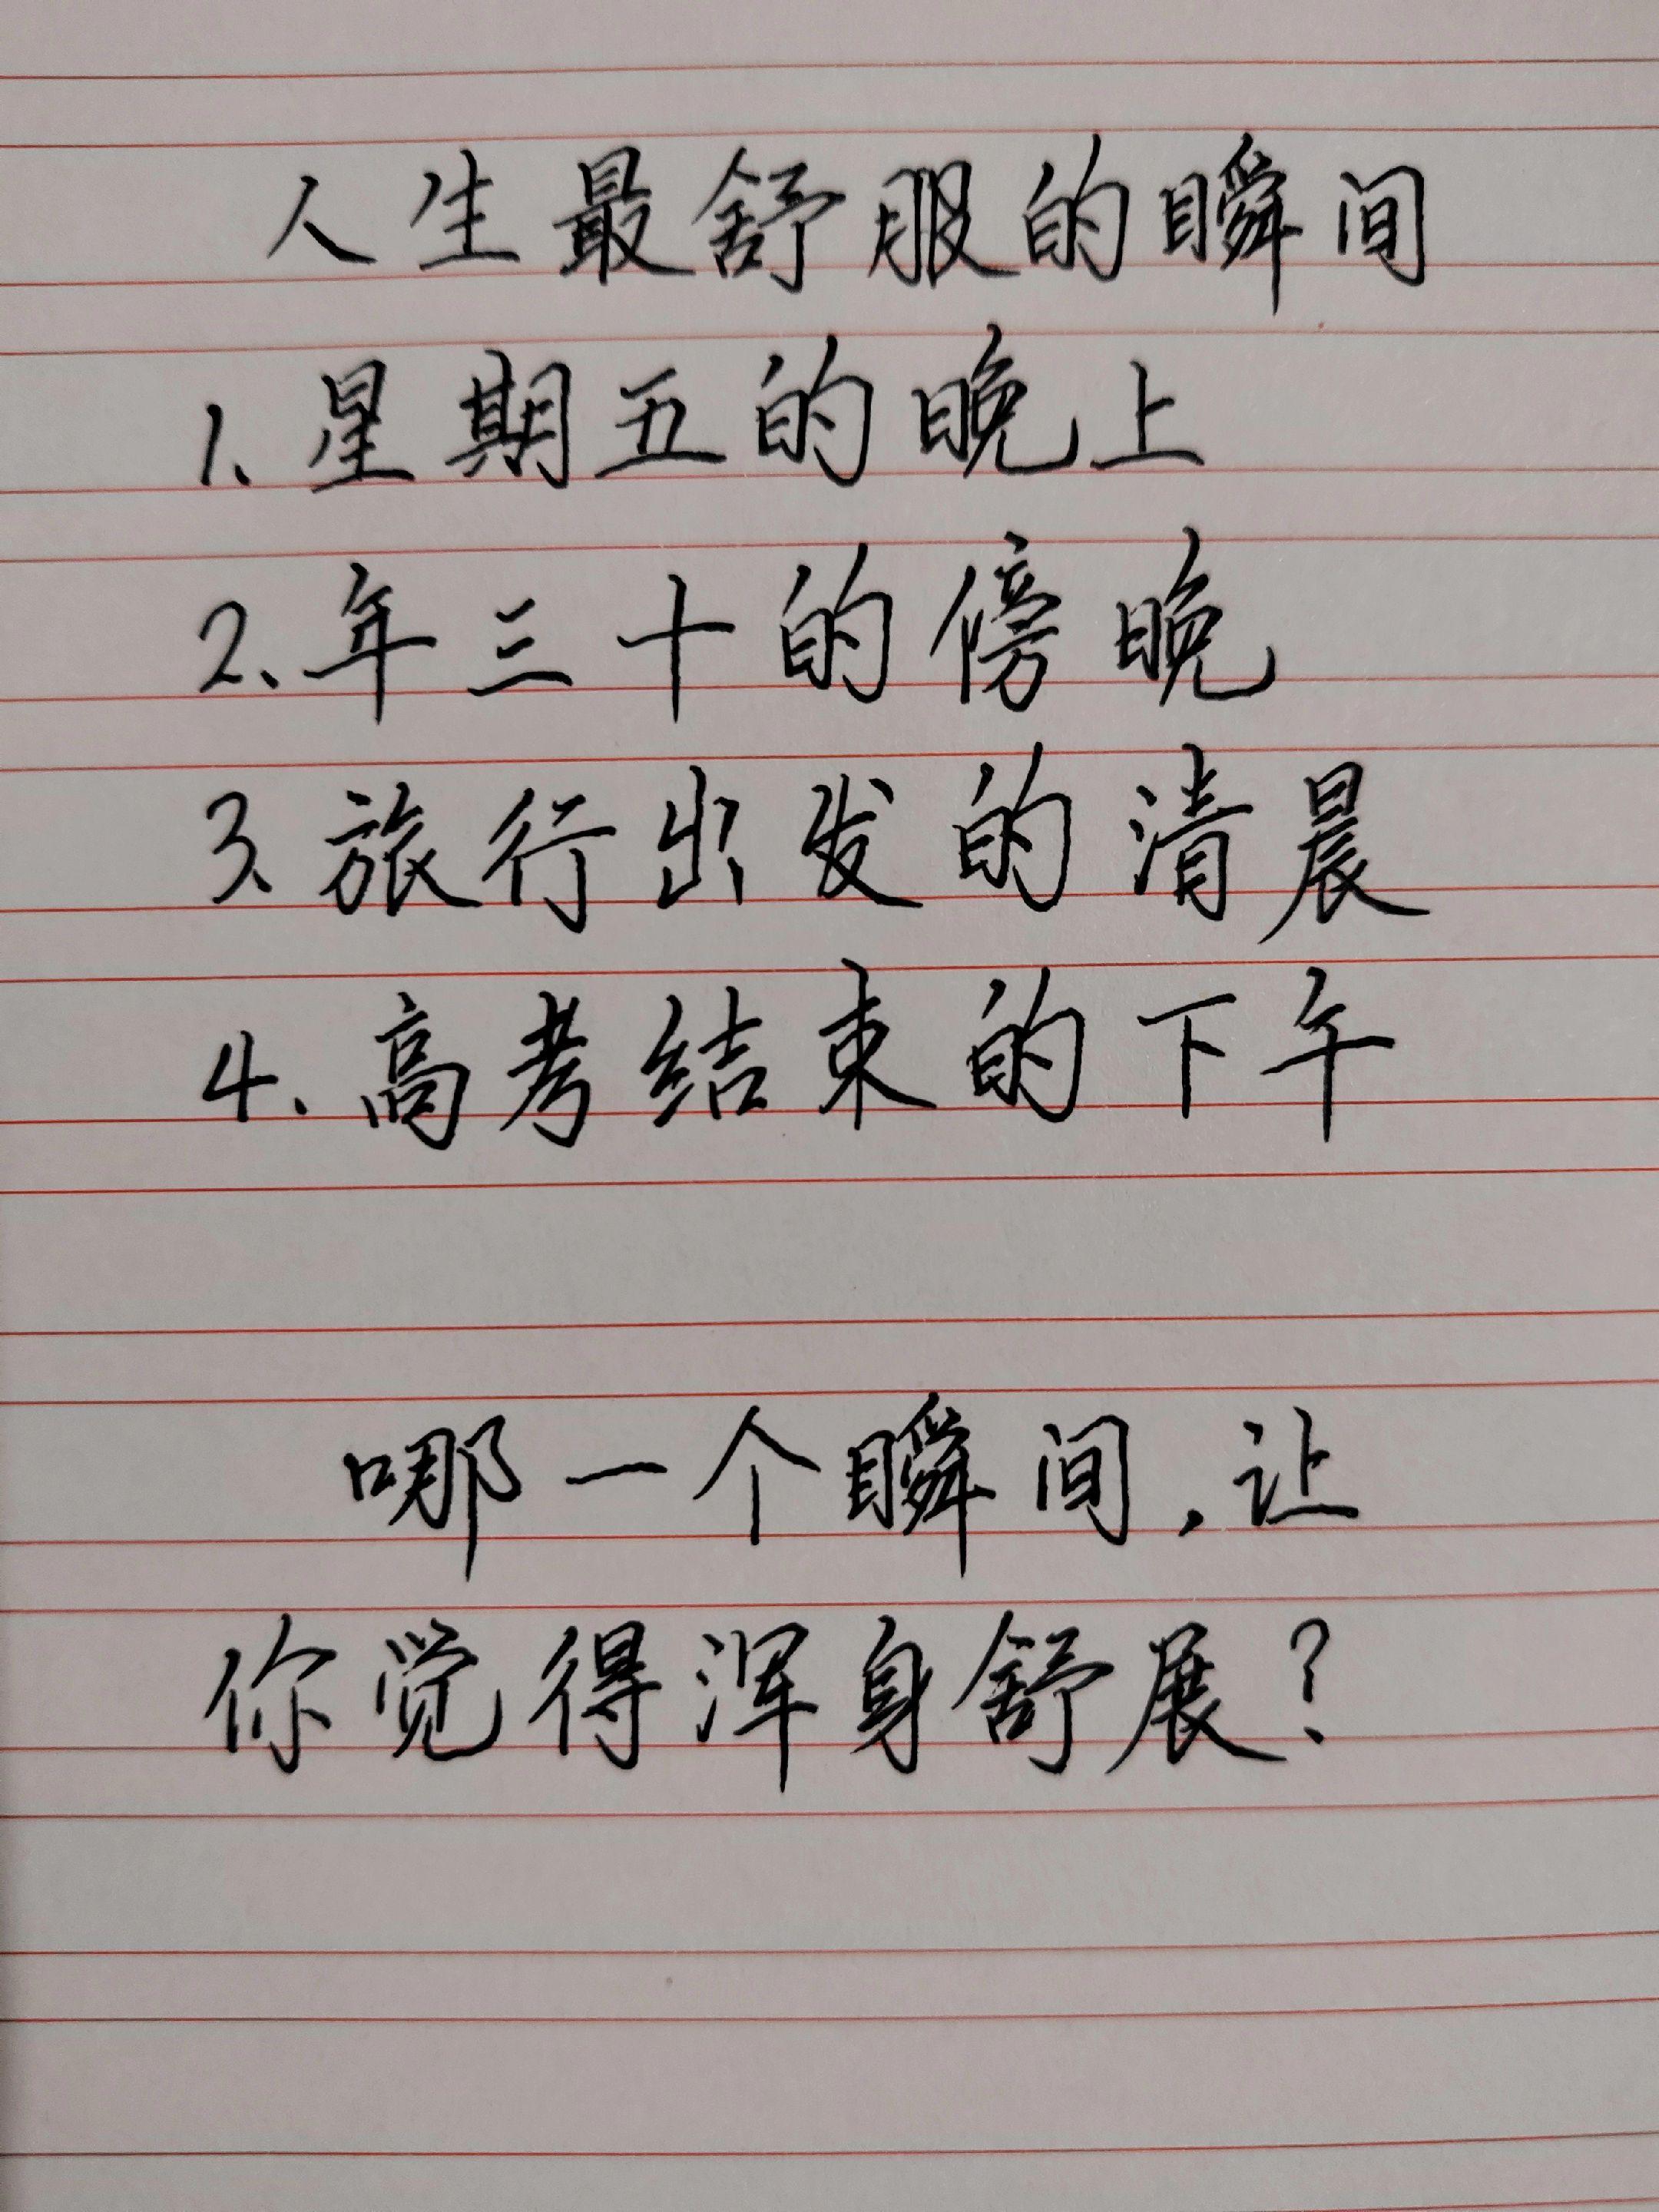 人生最舒服的瞬间
1、星期五的晚上
2、年三十的傍晚
3、旅行出发的清晨
4、高考结束的下午
哪一个瞬间，让
你觉得浑身舒展？